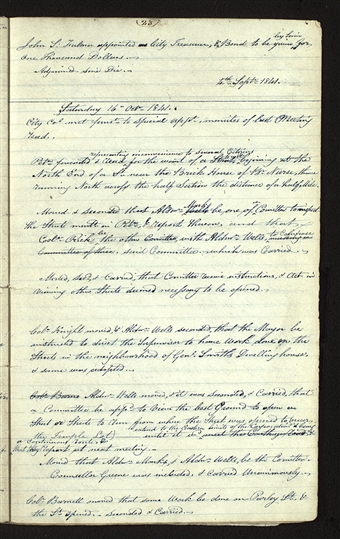 (23)
John S. Fulmer appointed as City Treasurer, & Bond to be given by him for
One Thousand Dollars.
Adjourned Sine Die.
4th Sept. 1841.
Saturday 16th Oct. 1841.
City Col. met pursut. to special appt. minutes of last Meeting
read.
representing inconvenience to several Citizens
Petn. presented & read for the want of a Street beginning at the
North End of a St. near the Brick House of Br. Nurse, thence
running North across the half Section the distance of a half Mile.
Moved & seconded that Alder. Marks be one of Comittee to inspect
the Street mentd. in Petn. & report thereon, and that
Col. Rich be the other Comittee, with Alder. Wells, to compose
Committee of three, said Committee which was carried
Moved, secd. & Carried, that Comittee receive instructions, & Act in
viewing other Streets deemed necessary to be opened.
Col. Knight moved, & Aldr. Wells seconded, that the Mayor be
instructed to direct the Supervisor to have Work done on the
Streets in the neighbourhood of Genl. Smith's Dwelling house,
& same was adopted.
Aldr. Wells moved, & it was seconded, & Carried, that
a Committee be appt. to View the best Ground to open a
Street or Streets to run from where the Street was opened to
the Temple
a Continuous route &
that they report at next meeting.
Moved that Alder. Marks, & Alder. Wells, be the Comittee.
Counsellor Greene was included, & carried Unanimously.
Col. Barnett moved that some Work be done on Parley St. &
the St. opened. Seconded & Carried.